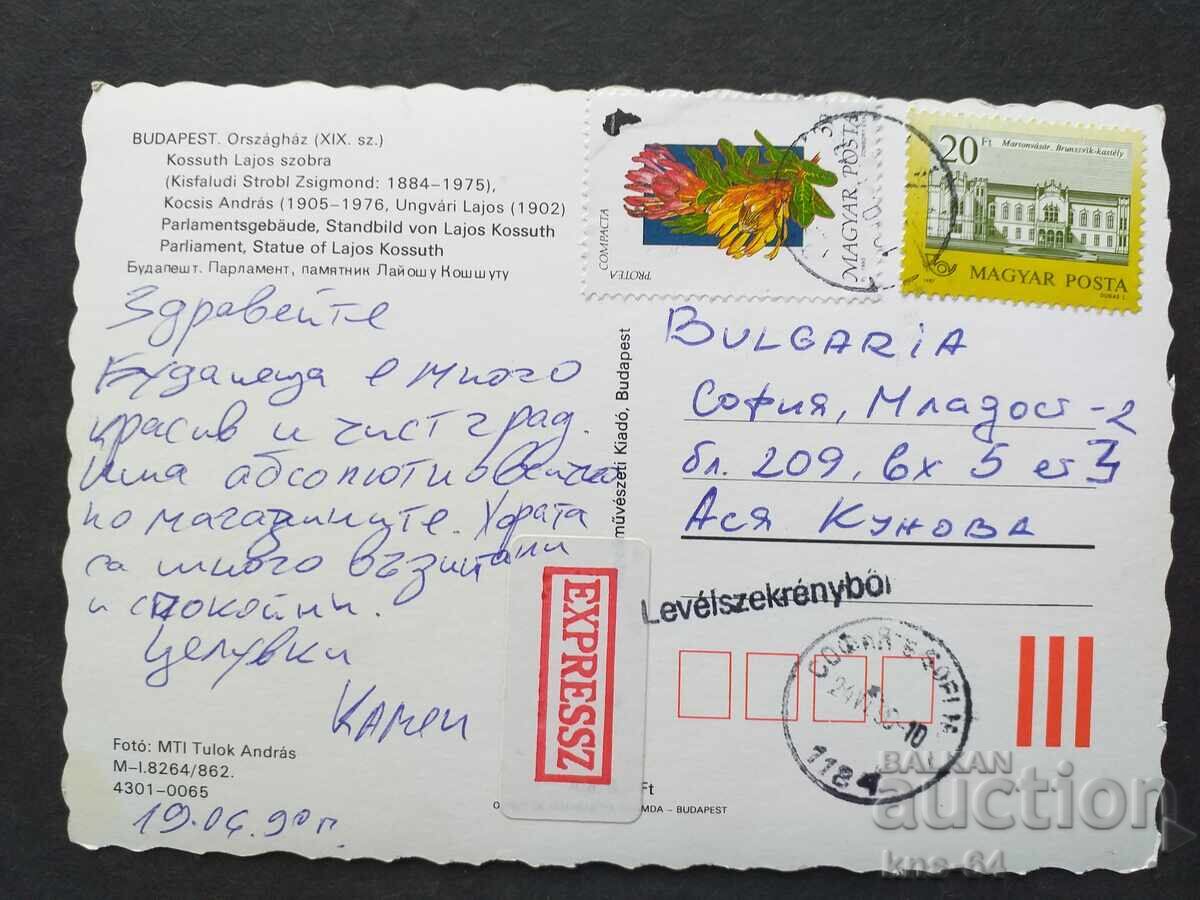 BUDAPEST. Országház (XIX. sz.)
Kossuth Lajos szobra
(Kisfaludi Strobl Zsigmond: 1884–1975),
Kocsis András (1905–1976, Ungvári Lajos (1902)
Parlamentsgebäude, Standbild von Lajos Kossuth
Parliament, Statue of Lajos Kossuth
Будапешт. Парламент, памятник Лайошу Кошшуту
Здравейте
Будапеща е много
красив и чист град.
Има абсолютно всичко
по магазините. Хората
са много възпитани
и спокойни.
Целувки
Камен
Fotó: MTI Tulok András
M–I.8264/862.
4301–0065
19.06.90 г.
művészeti Kiadó, Budapest
EXPRESSZ
Ft
MDA – BUDAPEST
COMPACTA
PROTEA
MAGYAR POSTA
20 Ft
Martonvásár, Brunszvik-kastély
MAGYAR POSTA
1987
DUDÁS L.
BULGARIA
София, Младост-2
бл. 209, вх 5 ет 3
Ася Кунова
Levélszekrényből
СОФИЯ
1184
BALKAN
auction
kns-64